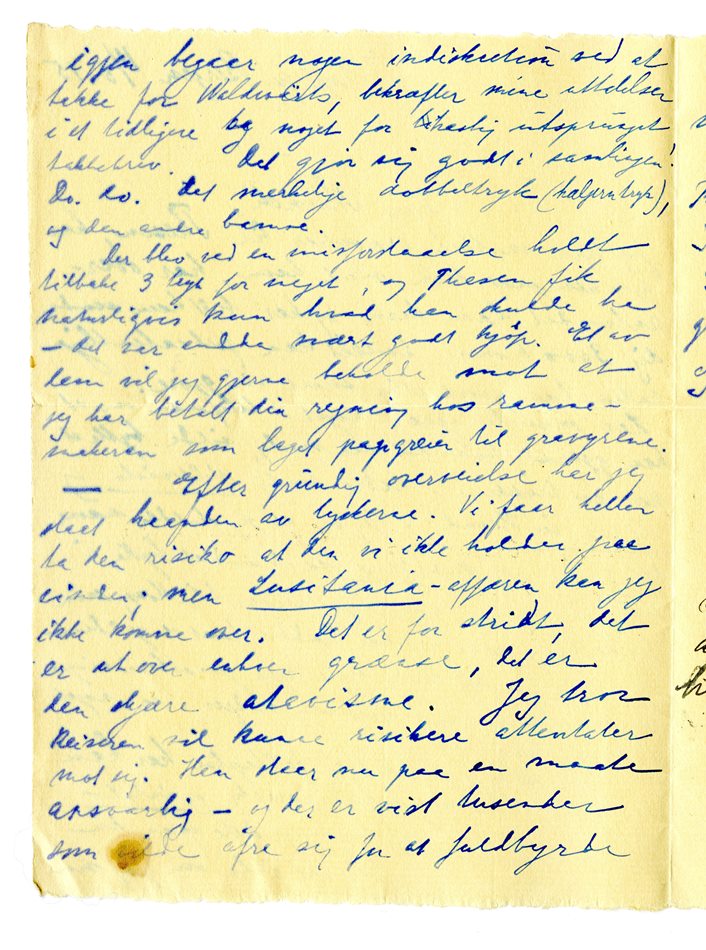 igjen begaar nogen indiskretion ved at
takke for Waldwärts, bekræfter mine uttalelser
i et tidligere og noget for hastig utsprunget
takkebrev. Det gjør sig godt i samlingen!
Do. do. det merkelige dobbeltryk (halpentryk),
og den andre bamse.
Der blev ved en misforstaaelse holdt
tilbake 3 tryk for meget, og Thesen fik
naturligvis kun hvad han skulde ha
– det var endda svært godt kjøp. Et av
dem vil jeg gjerne beholde mot at
jeg har betalt din regning hos ramme-
makeren som laget papgreier til gravyrene.
— Efter grundig overveielse har jeg
slaat haanden av tyskerne. Vi faar heller
ta den risiko at den vi ikke holder paa
vinder; men Lusitania-affæren kan jeg
ikke komme over. Det er for stridt, det
er ut over enhver grænse, det er
den skjære atavisme. Jeg tror
Keiseren vil kunne risikere attentater
mot sig. Han staar nu paa en maate
ansvarlig – og der er vist tusender
som vilde ofre sig for at fuldbyrde